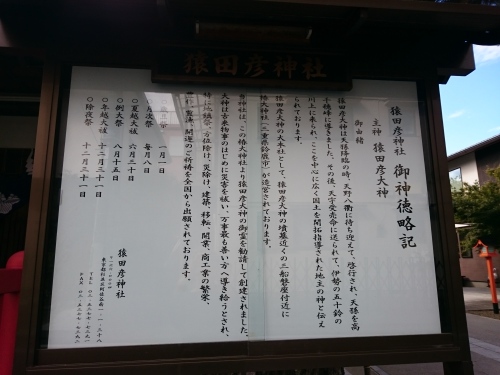 猿田彦神社
猿田彦神社 御神徳略記
主神 猿田彦大神
御由緒
猿田彦大神は天孫降臨の時、天野八衢に待ち迎えて、啓行され、天孫を高
千穂峰に導きました。その後、天宇受売命に送られて、伊勢の五十鈴の
川上に来られ、ここを中心に広く国土を開拓指導された地主の神と伝え
られております。
猿田彦大神の大本社として、猿田彦大神の墳墓近くの土船磐座付近に
椿大神社(三重県鈴鹿市)が造営されております。
当神社は、この椿大神社より猿田彦大神の御霊を勧請して創建されました。
大神は古来物事のはじめに災害を祓い、万事最も善い方へ導き給うとされ、
特に地鎮祭、方位除け、災除け、建築、移転、開業、商工業の繁栄、
開運のご祈祷を全国から出願されております。
一月一日
○月次祭 毎月八日
○夏越大祓 六月三十日
○例大祭 八月十五日
○年越大祓 十二月三十一日
○除夜祭 十二月三十一日
猿田彦神社